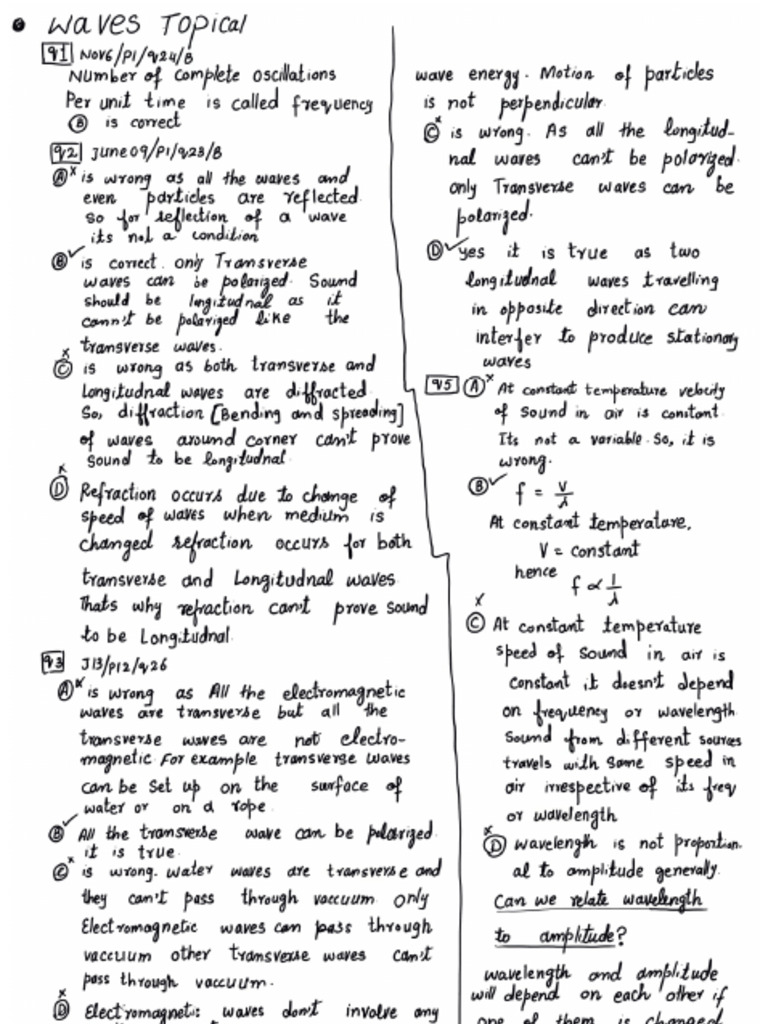 Waves Topical
q1 Nov6/P1/q24/B
Number of complete oscillations
Per unit time is called frequency
B is correct
q2 June09/P1/q23/B
A x is wrong as all the waves and
even particles are reflected
so for reflection of a wave
its not a condition
B ✓ is correct. only Transverse
waves can be polarized. Sound
should be longitudnal as it
cann't be polarized like the
transverse waves.
x
C is wrong as both transverse and
Longitudnal waves are diffracted.
So, diffraction [Bending and spreading]
of waves around corner can't prove
sound to be longitudnal.
x
D Refraction occurs due to change of
speed of waves when medium is
changed refraction occurs for both
transverse and Longitudnal waves.
Thats why refraction can't prove sound
to be Longitudnal.
q3 J13/P12/q26
A x is wrong as All the electromagnetic
waves are transverse but all the
transverse waves are not electro-
magnetic. For example transverse waves
can be set up on the surface of
water or on a rope.
B ✓ All the transverse wave can be polarized.
it is true.
C x is wrong. water waves are transverse and
they can't pass through vaccuum. only
Electromagnetic waves can pass through
vaccuum other transverse waves can't
pass through vaccuum.
x
D Electromagnetic waves don't involve any
wave energy. Motion of particles
is not perpendicular.
C x is wrong. As all the longitud-
nal waves can't be polarized.
only Transverse waves can be
polarized.
D ✓ yes it is true as two
longitudnal waves travelling
in opposite direction can
interfer to produce stationary
waves
q5 A x At constant temperature velocity
of sound in air is constant.
Its not a variable. So, it is
wrong.
B ✓ f = v/λ
At constant temperature,
V = constant
hence f ∝ 1/λ
x
C At constant temperature
speed of sound in air is
constant it doesn't depend
on frequency or wavelength.
Sound from different sources
travels with same speed in
air irrespective of its freq
or wavelength
x
D wavelength is not proportion-
al to amplitude generally.
Can we relate wavelength
to amplitude?
wavelength and amplitude
will depend on each other if
one of them is changed